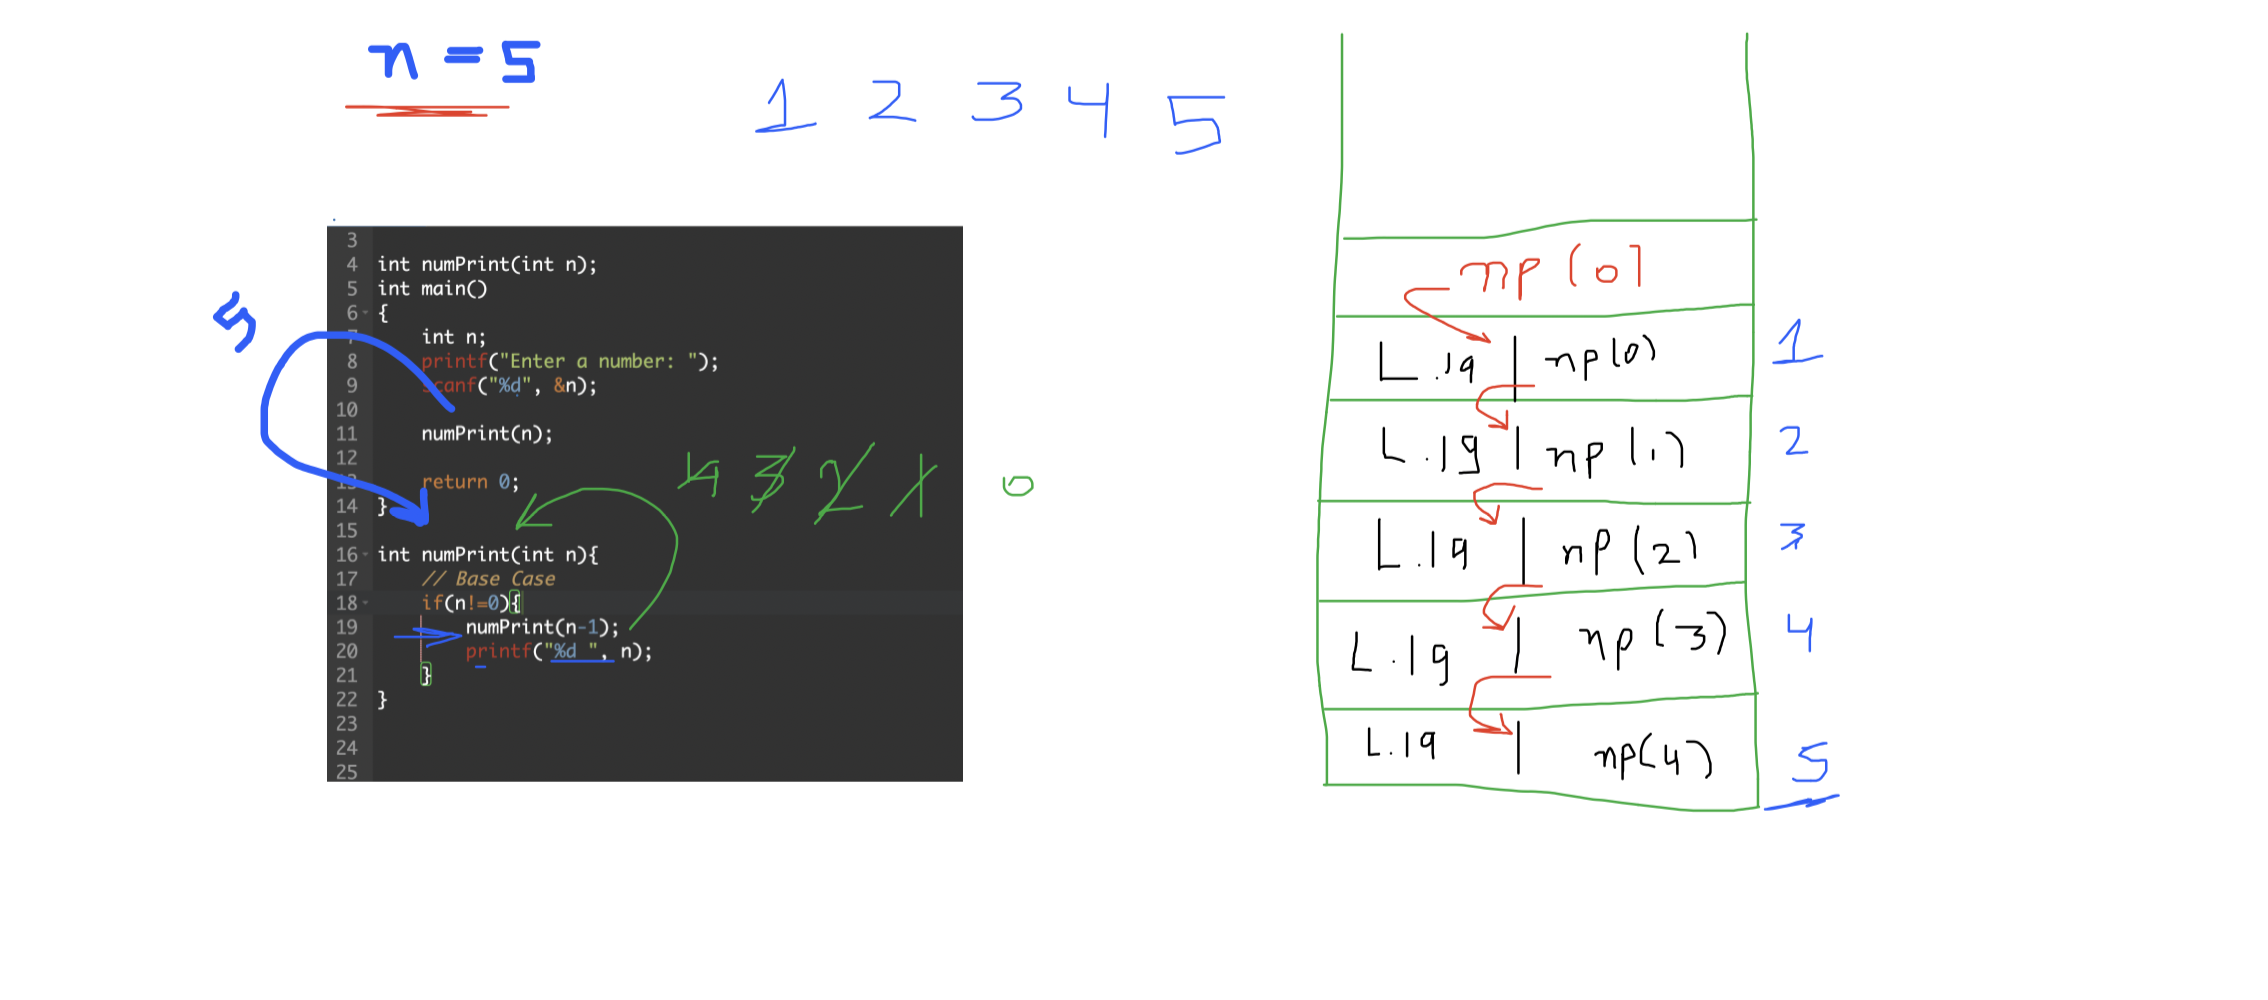 n = 5
1 2 3 4 5
5
3
4 int numPrint(int n);
5 int main()
6 {
7 int n;
8 printf("Enter a number: ");
9 scanf("%d", &n);
10
11 numPrint(n);
12
13 return 0;
14 }
15
16 int numPrint(int n){
17 // Base Case
18 if(n!=0){
19 numPrint(n-1);
20 printf("%d ", n);
21 }
22 }
23
24
25
4 3 2 1 0
np(0)
L.19 | np(0) 1
L.19 | np(1) 2
L.19 | np(2) 3
L.19 | np(3) 4
L.19 | np(4) 5